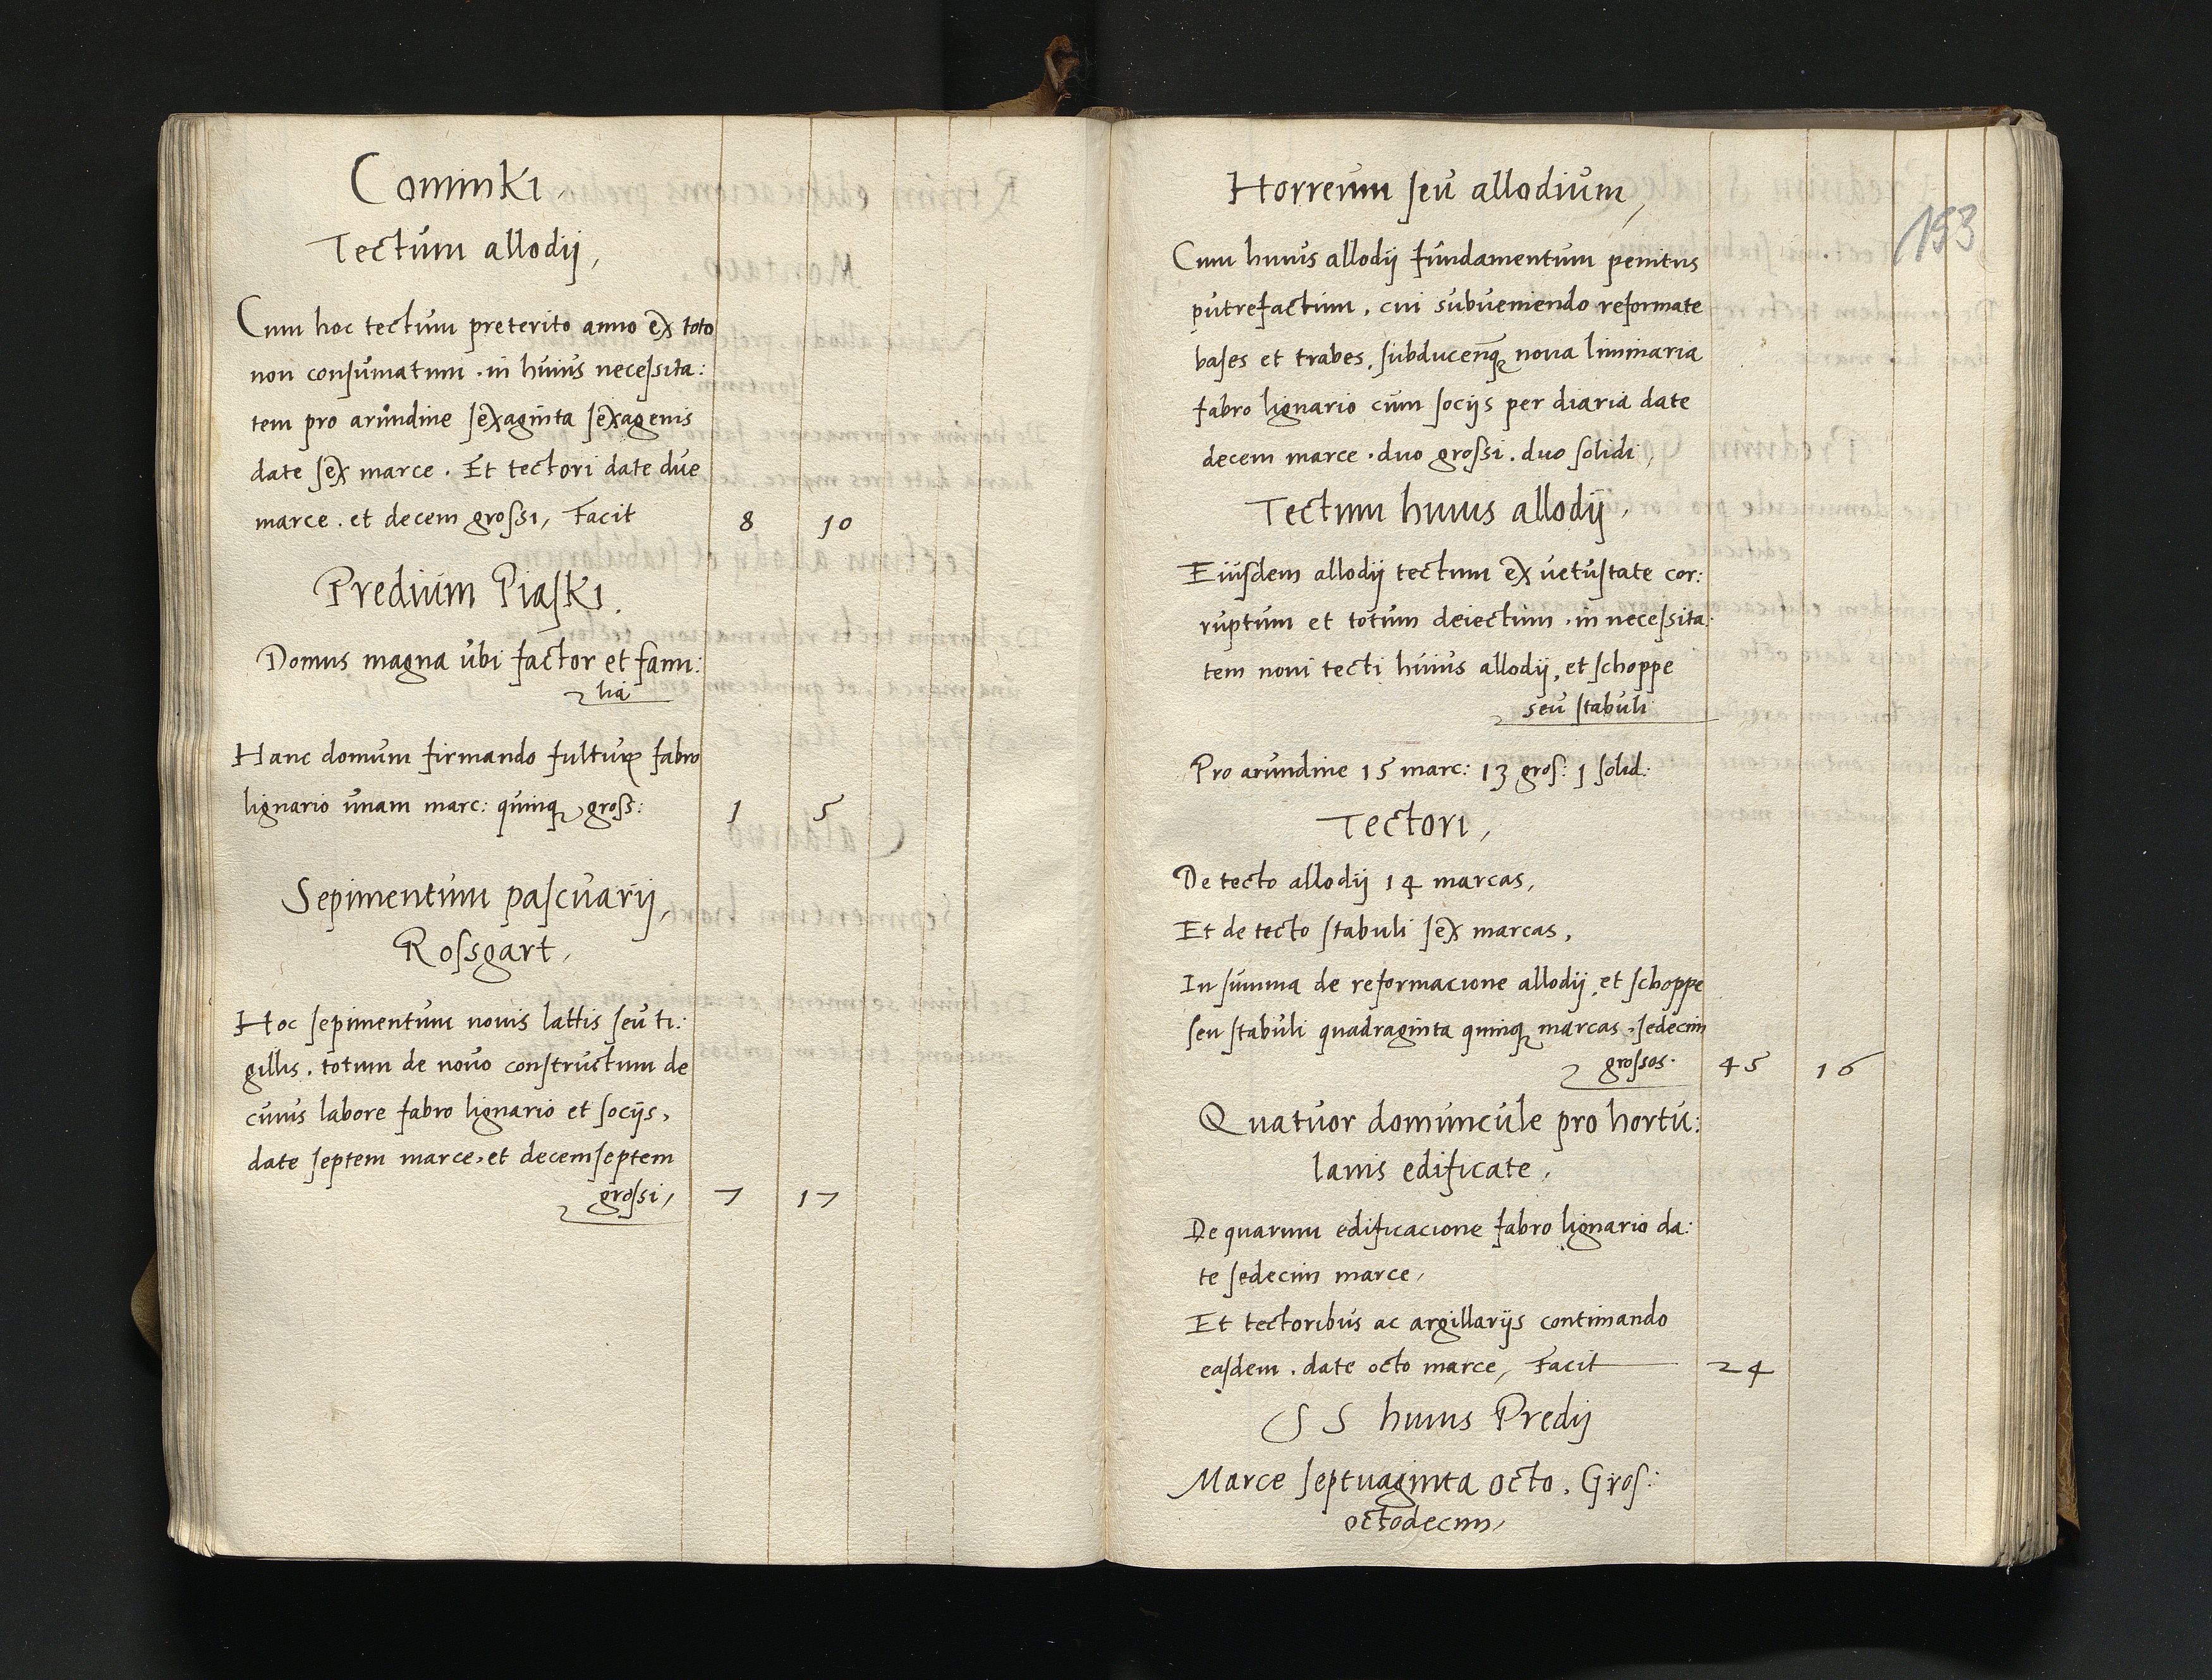 Cominki,
Tectum allodij,
Cum hoc tectum preterito anno ex toto
non consumatum . in huius necessita:
tem pro arundine sexaginta sexagenis
date sex marce . Et tectori date due
marce . et decem grossi, Facit 8 10
Predium Piaski.
Domus magna ubi factor et fami:
lia
Hanc domum firmando fulturꝭ fabro
lignario unam marc: quinqꝫ gross: 1 5
Sepimentum pascuarij,
Rossgart,
Hoc sepimentum nouis lattis seu ti:
gillis . totum de nouo constructum de
cuius labore fabro lignario et socijs,
date septem marce, et decemseptem
grossi, 7 17
153
Horreum seu allodium,
Cum huius allodij fundamentum penitus
putrefactum . cui subueniendo reformate
bases et trabes. subducenqꝫ noua liminaria
fabro lignario cum socijs per diaria date
decem marce . duo grossi . duo solidi,
Tectum huius allodij,
Eiusdem allodij tectum ex uetustate cor:
ruptum et totum deiectum . in necessita:
tem noui tecti huius allodij, et schoppe
seu stabuli
Pro arundine 15 marc: 13 gros: 1 solid:
Tectori,
De tecto allodij 14 marcas,
Et de tecto stabuli sex marcas,
In summa de reformacione allodij, et schoppe
seu stabuli quadraginta quinqꝫ marcas, sedecim
grossos. 45 16
Quatuor domuncule pro hortu:
lanis edificate,
De quarum edificacione fabro lignario da:
te sedecim marce,
Et tectoribus ac argillarijs continando
easdem . date octo marce, Facit 24
S S huius Predij
Marce septuaginta octo. Gros:
octodecim,